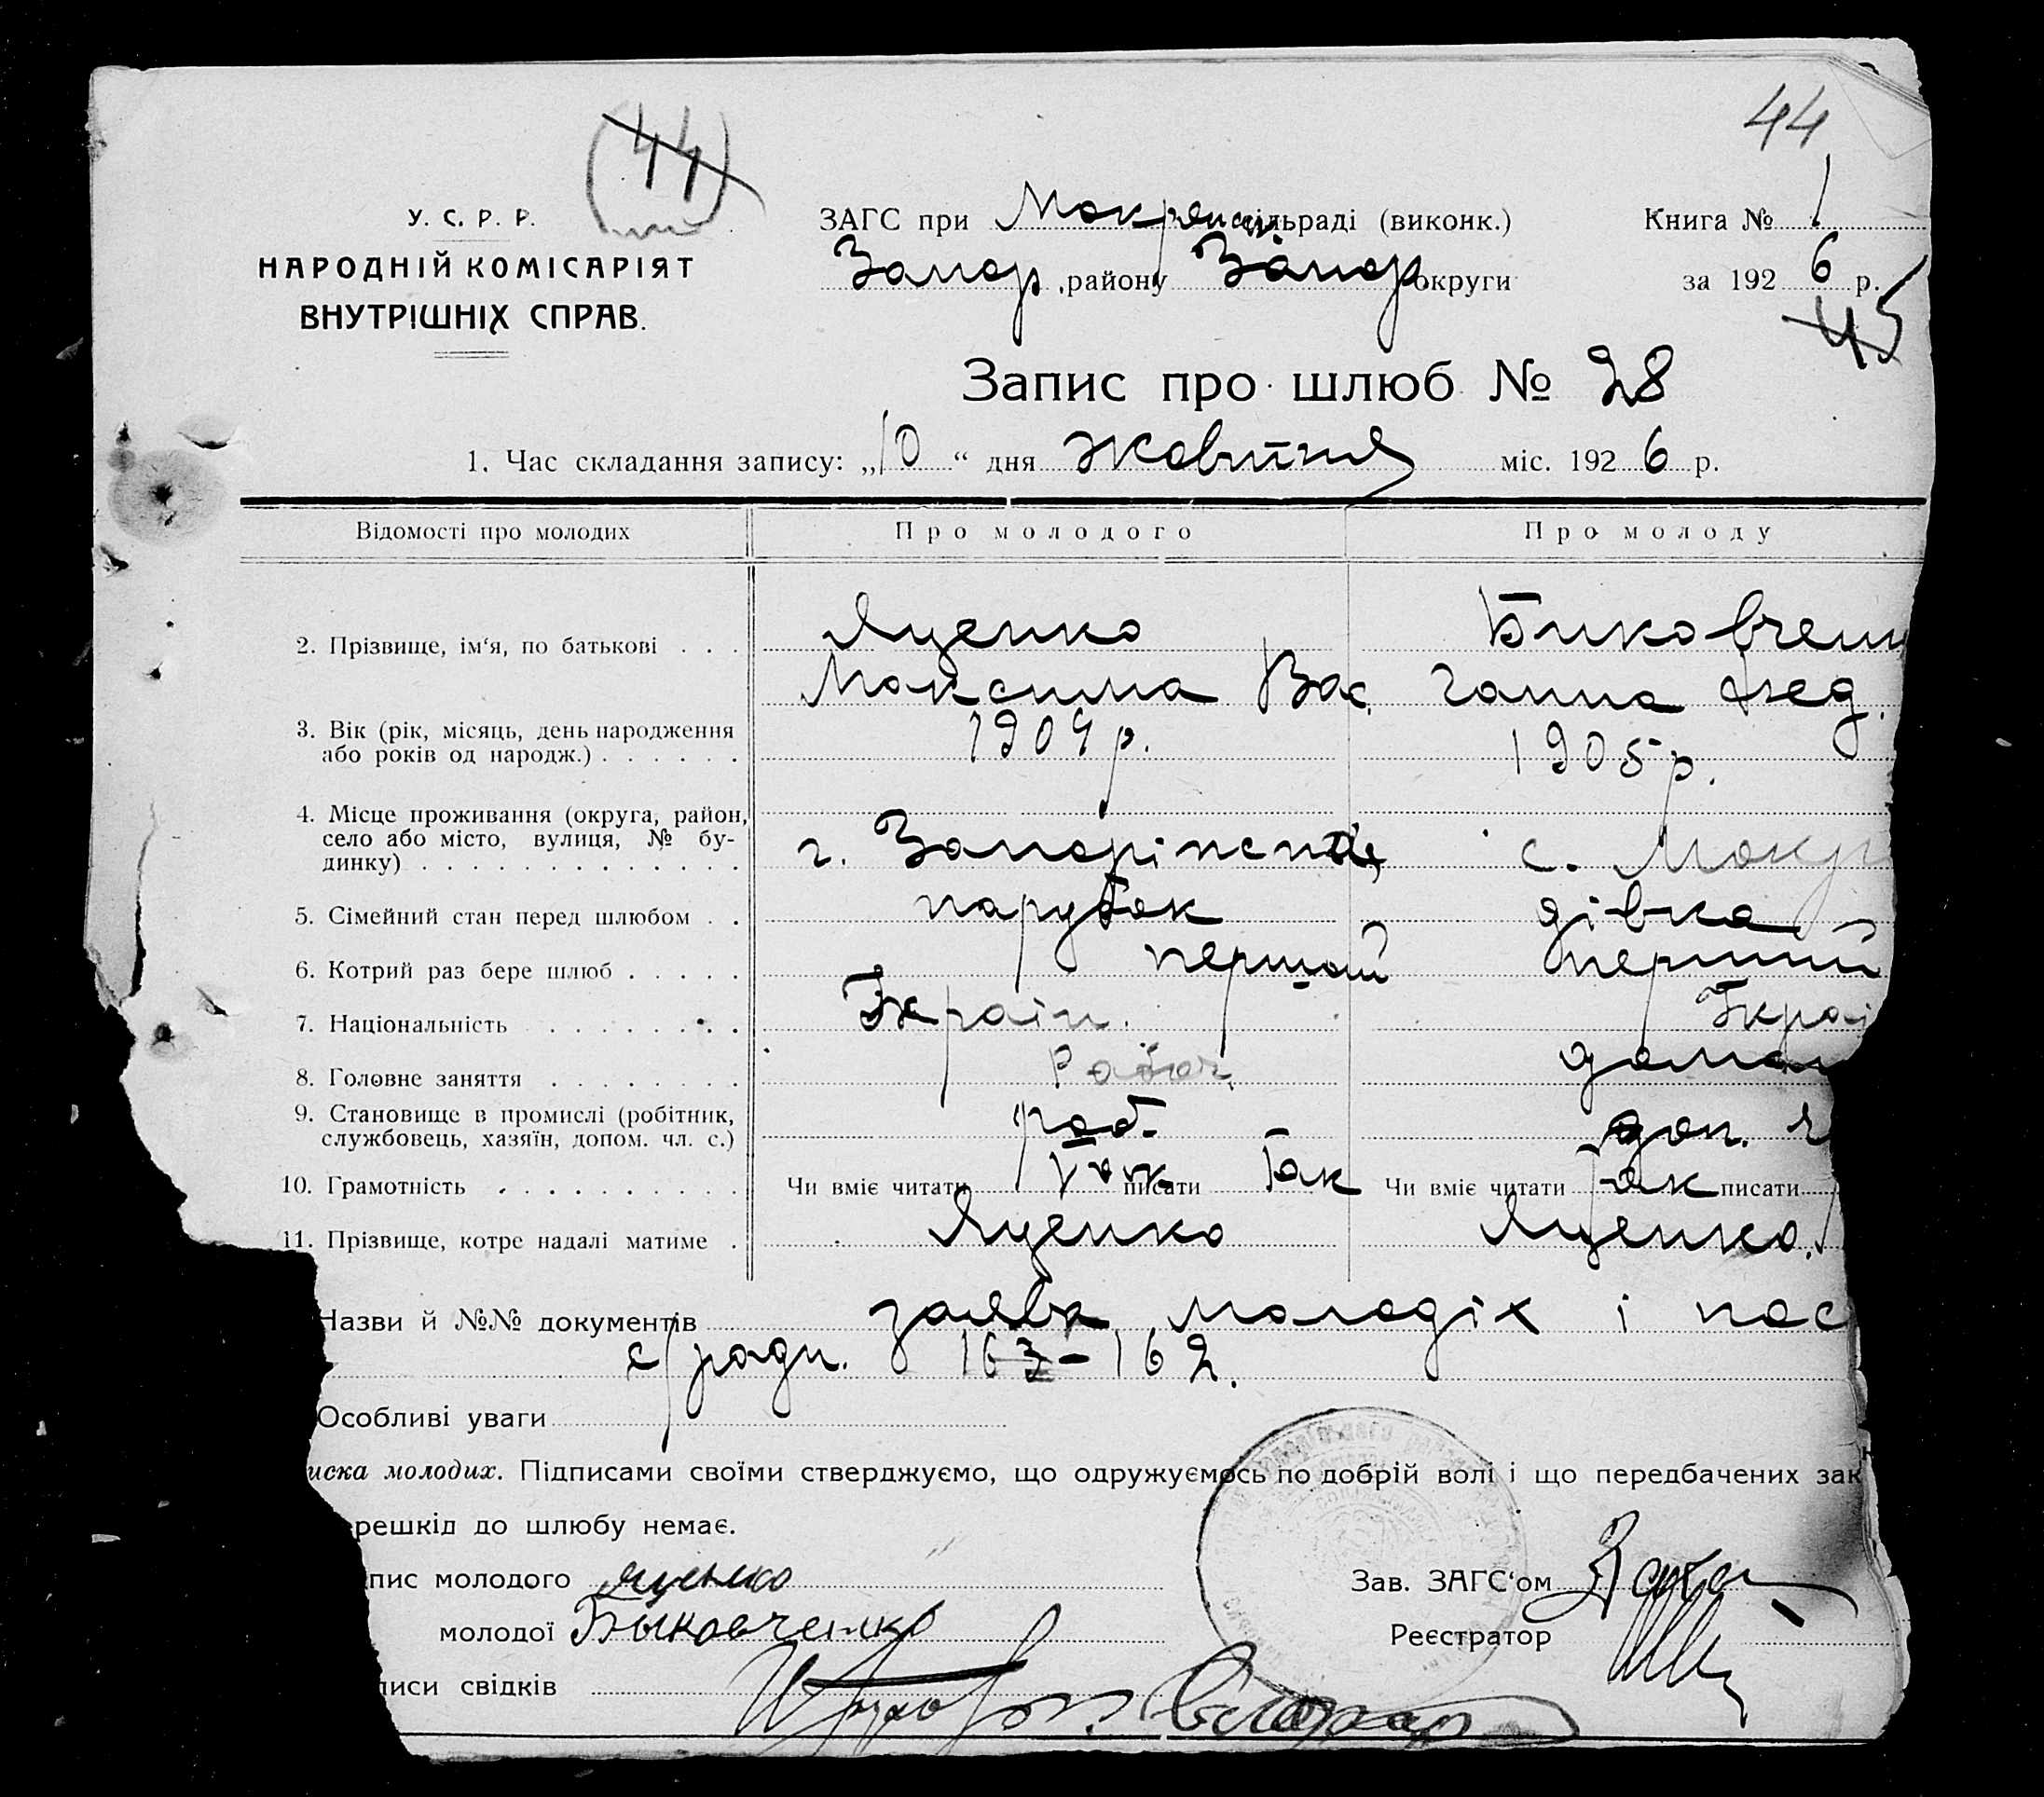 44
(44)
У. С. Р. Р.
НАРОДНІЙ КОМІСАРІЯТ
ВНУТРІШНІХ СПРАВ.
ЗАГС при Мокрянськ сільраді (виконк.)
Запор. району Запор округи
Книга № 1
за 1926 р.
45
Запис про шлюб № 28
1. Час складання запису: „10“ дня Жовтня міс. 1926 р.
Відомості про молодих Про молодого Про молоду
2. Прізвище, ім‘я, по батькові . . . Яценко Биковчен
Максима Вас. Ганна Фед.
3. Вік (рік, місяць, день народження 1904 р. 1905 р.
або років од народж.) . . . . . .
4. Місце проживання (округа, район,
село або місто, вулиця, № бу- г. Запоріжжє с. Мокр
динку) . . . . . . . . . . . . .
5. Сімейний стан перед шлюбом . . парубок дівка
6. Котрий раз бере шлюб . . . . . перший перший
7. Національність . . . . . . . Україн. Украї
8. Головне заняття . . . . . . . . Робоч. домаш
9. Становище в промислі (робітник, роб. доп. ч
службовець, хазяїн, допом. чл. с.)
10. Грамотність . . . . . . . . . . Чи вміє читати так писати так Чи вміє читати так писати
11. Прізвище, котре надалі матиме . Яценко Яценко.
Назви й №№ документів заява молодіх і пос
с/ради. 163-162.
Особливі уваги
иска молодих. Підписами своїми стверджуємо, що одружуємось по добрій волі і що передбачених зак
решкід до шлюбу немає.
пис молодого Яценко
Зав. ЗАГС‘ом
молодої Быковченко
Реєстратор
писи свідків